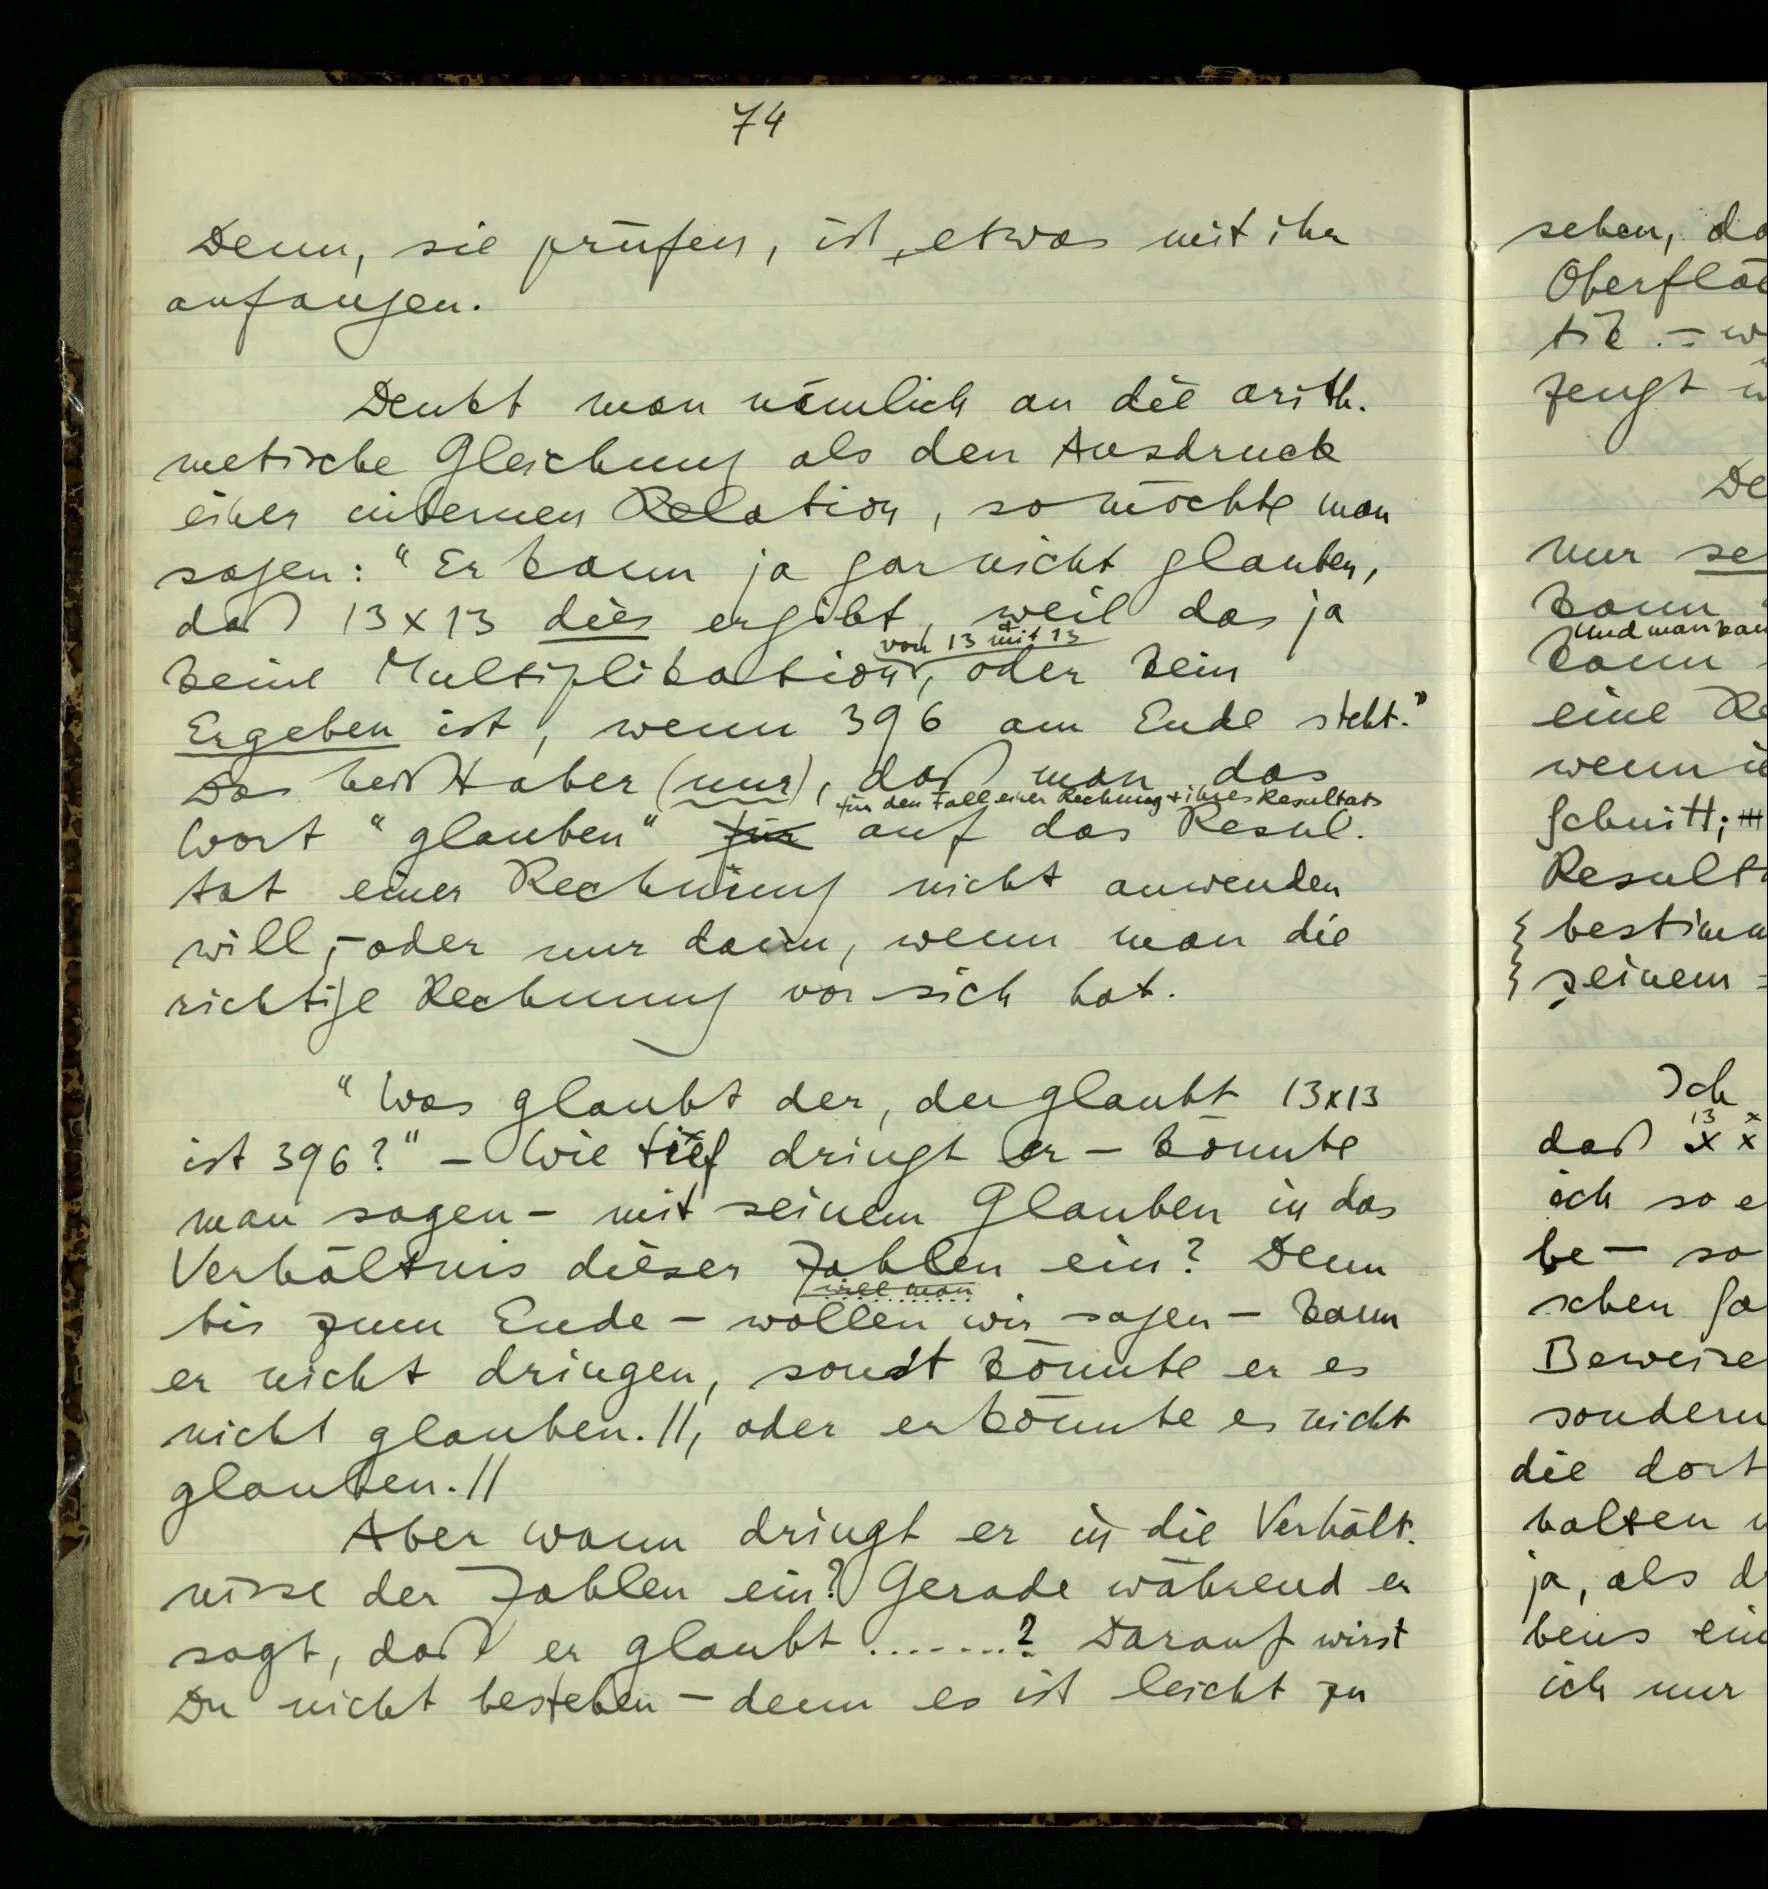 74
Denn, sie prüfen, ist, etwas mit ihr
anfangen.
Denkt man nämlich an die arith-
metische Gleichung als den Ausdruck
einer internen Relation, so möchte man
sagen: "Er kann ja gar nicht glauben,
daß 13 x 13 dies ergibt, weil das ja
von 13 mit 13
keine Multiplikation, oder kein
Ergeben ist, wenn 396 am Ende steht."
Das heißt aber (nur), daß man das
für den Fall einer Rechnung + ihres Resultats
Wort "glauben" für auf das Resul-
tat einer Rechnung nicht anwenden
will, – oder nur dann, wenn man die
richtige Rechnung vor sich hat.
"Was glaubt der, der glaubt 13x13
ist 396?" – Wie tief dringt er – könnte
man sagen – mit seinem Glauben in das
Verhältnis dieser Zahlen ein? Denn
will man
bis zum Ende – wollen wir sagen – kann
er nicht dringen, sonst könnte er es
nicht glauben. //, oder er könnte es nicht
glauben. //
Aber wann dringt er in die Verhält-
nisse der Zahlen ein? Gerade während er
sagt, daß er glaubt .......? Darauf wirst
Du nicht bestehen – denn es ist leicht zu
sehen, da
Oberfläc
tik – w
zeugt
De
nur se
kann
Und man kan
kann
eine Re
wenn i
schnitt;
Result
bestimm
seinem
Ich
13 x
daß x x
ich so e
be – so
schen ga
Beweise
sondern
die dort
halten
ja, als d
bens ein
ich nur